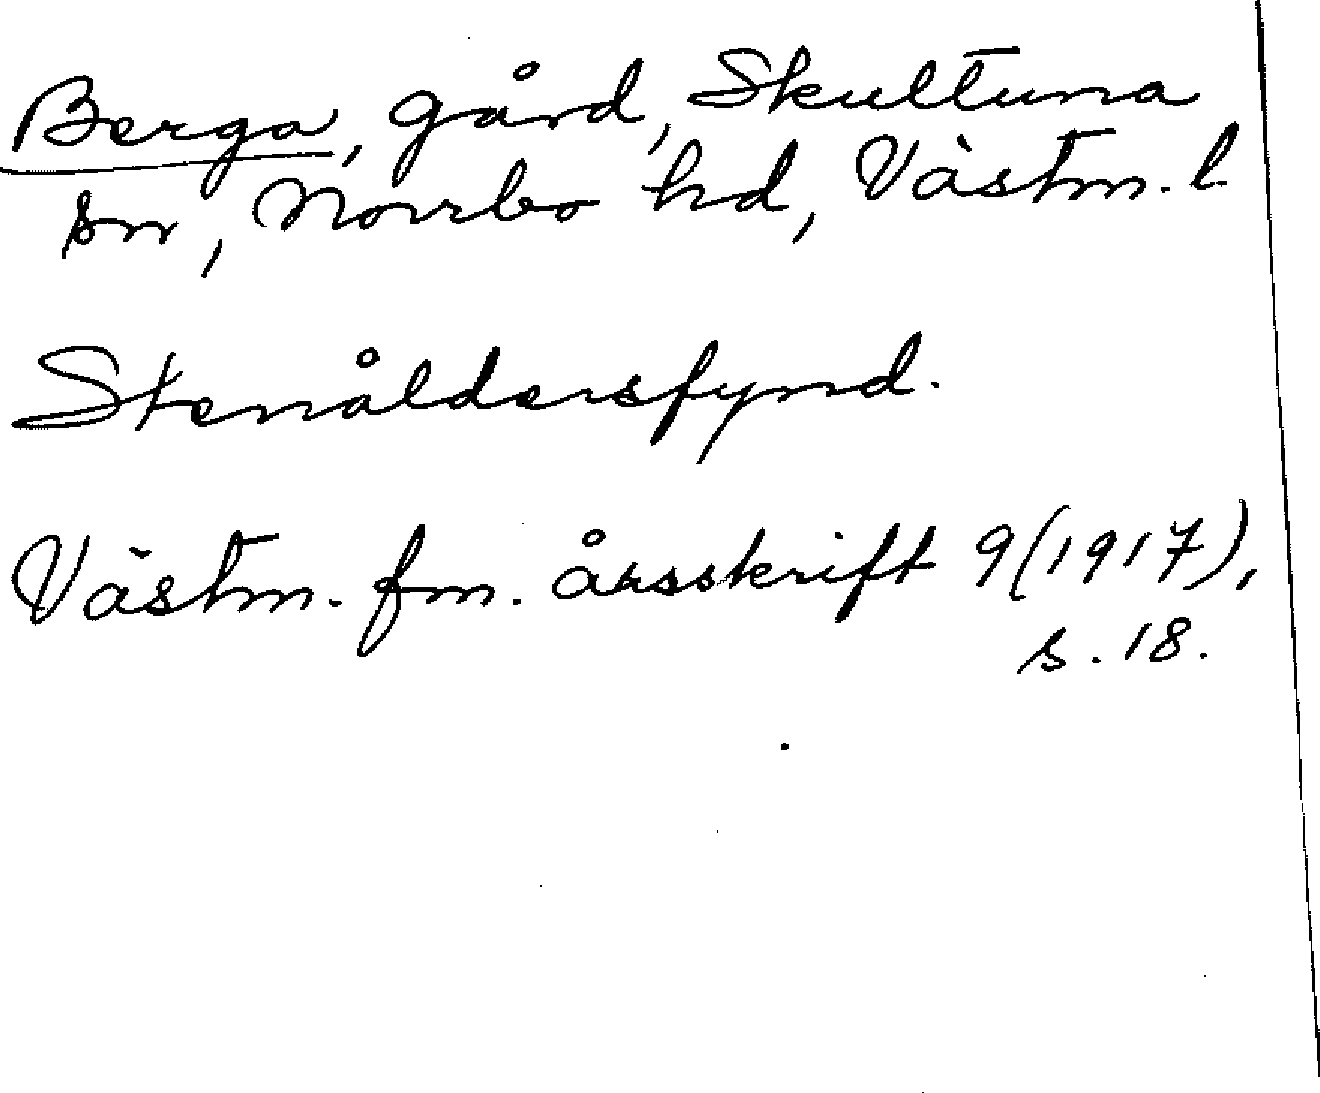 Berga, gård, Skultuna
sn, Norrbo hd, Västm. l
Stenåldersfynd.
Västm. fm. årsskrift 9(1917),
s. 18.